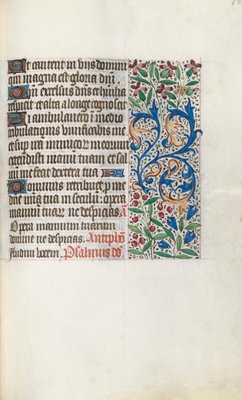 Et cantent in viis domini
qm magna est gloria dni.
Qm excelsus dns et humilia
respicit et alta a longe cognoscit
Si ambulavero in medio
tribulationis vivificabis me
et sup iram inimicor meorum
extendisti manū tuam et sal
vū me fecit dextera tua
Dominus retribuet p me
dne mīa tua in seculū opera
manuū tuar ne despicias A
Opera manuum tuarum
domine ne despicias. Antiphō
Psalmus d